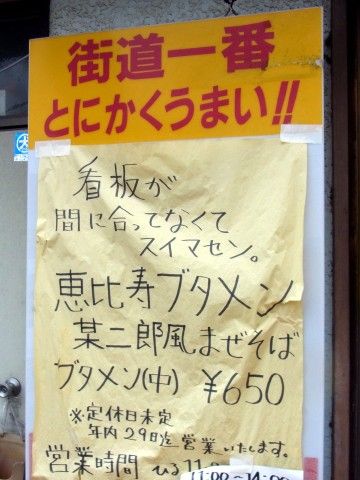 街道一番
とにかくうまい!!
看板が
間に合ってなくて
スイマセン。
恵比寿ブタメン
某二郎風まぜそば
ブタメン(中) ¥650
※定休日未定
年内29日迄営業いたします。
営業時間 ひる11:0
11:00~14:00